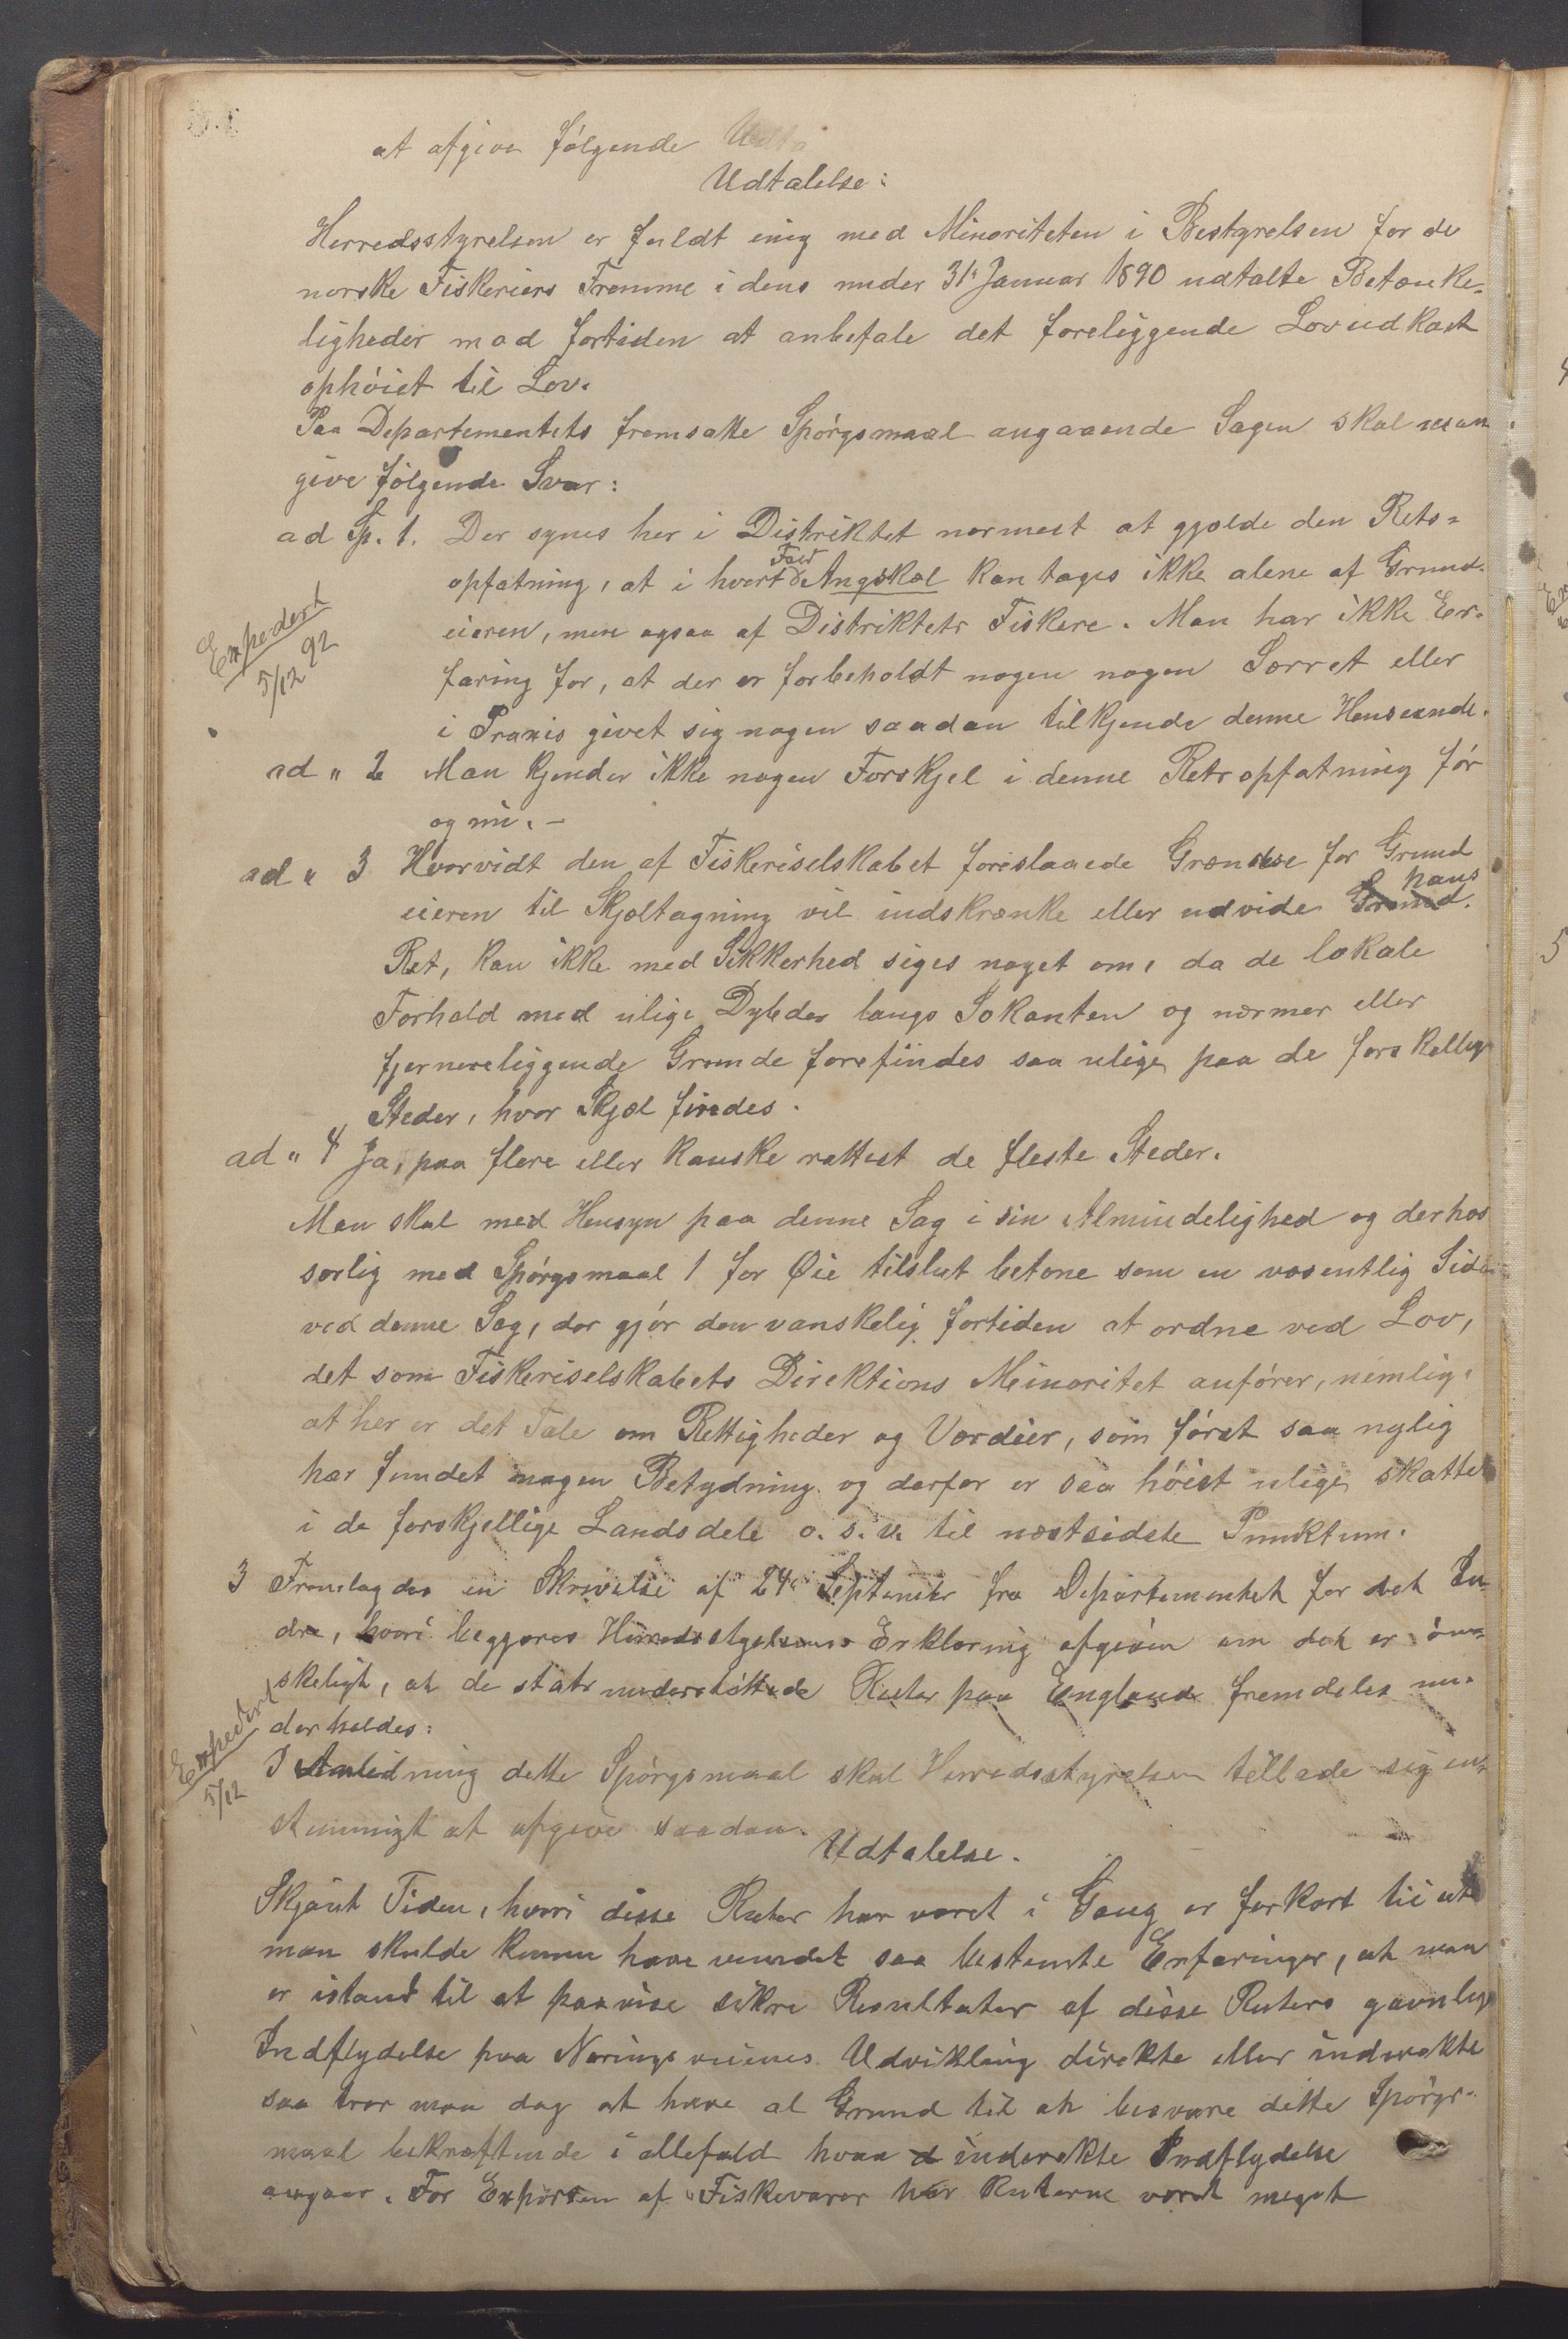 at afgive følgende Udta
Udtalelse:
Herredsstyrelsen er fuldt enig med Minoriteten i Bestyrelsen for de
norske Fiskeriers Fremme i dens under 31' Januar 1890 udtalte Betænke-
ligheder mod fortiden at anbefale det foreliggende Lovudkast
ophöiet til Lov.
Paa Departementets fremsatte Spörgsmaal angaaende Sagen skal man
give fölgende Svar:
ad Sp. 1. Der synes her i Distriktet nærmest at gjælde den Rets-
opfatning, at i hvert Fald Angskæl kan tages ikke alene af Grund-
eieren, men ogsaa af Distriktets Fiskere. Man har ikke Er-
faring for, at der er forbeholdt nogen nogen Særret eller
i Praxis givet sig nogen saadan tilkjende denne Henseende.
Expedert
5/12 92
ad " 2 Man kjender ikke nogen Forskjel i denne Retsopfatning för
og nu. -
ad " 3 Hvorvidt den af Fiskeriselskabet foreslaaede Grændse for Grund
eieren til Skjæltagning vil indskrænke eller udvide Grund. hans
Ret, kan ikke med Sikkerhed siges noget om, da de lokale
Forhold med ulige Dybder langs Søkanten og nærmer eller
fjernereliggende Grunde forefindes saa ulige paa de forskellige
Steder, hvor Skjæl findes.
ad " 4 Ja, paa flere eller kanske rettest de fleste Steder.
Man skal med Hensyn paa denne Sag i sin Almindelighed og derhos
særlig med Spörgsmaal 1 for Øie tilslut betone som en væsentlig Side
ved denne Sag, der gjör den vanskelig fortiden at ordne ved Lov,
det som Fiskeriselskabets Direktions Minoritet anförer, nemlig:
at her er det Tale om Rettigheder og Værdier, som först saa nylig
har fundet nogen Betydning og derfor er saa höist ulige skattet
i de forskjellige Landsdele o. s. v. til næstsidste Punktum.
3 Fremlagdes en Skrivelse af 24' September fra Departementet for det In-
dre, hvori begjæres Herredsstyrelsens Erklæring afgiven om det er öns-
keligt, at de statsunderstöttede Ruter paa England fremdeles un-
derholdes:
Expedert
5/12
I Anledning dette Spörgsmaal skal Herredsstyrelsen tillade sig en-
stemmigt at afgive saadan
Udtalelse.
Skjönt Tiden, hvori disse Ruter har været i Gang er forkort til at
man skulde kunne have vundet saa bestemte Erfaringer, at man
er istand til at paavise sikre Resultater af disse Ruters gavnlige
Indflydelse paa Næringsveienes Udvikling direkte eller inderekte
saa tror man dog at have al Grund til at besvare dette Spörgs-
maal bekræftende i allefald hvaa d inderekte Indflydelse
angaar. For Exporten af Fiskevarer har Ruterne været meget